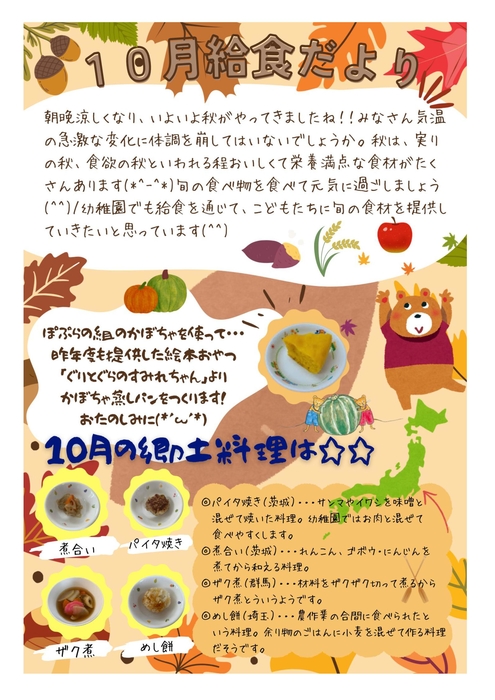 10月給食だより
朝晩涼しくなり、いよいよ秋がやってきましたね!!みなさん気温
の急激な変化に体調を崩してはいないでしょうか。秋は、実り
の秋、食欲の秋といわれる程おいしくて栄養満点な食材がたく
さんあります(*^-^*)旬の食べ物を食べて元気に過ごしましょう
(^^)/幼稚園でも給食を通じて、こどもたちに旬の食材を提供し
ていきたいと思っています(^^)
ぽぷらの組のかぼちゃを使って・・・
昨年度も提供した絵本おやつ
「ぐりとぐらのすみれちゃん」より
かぼちゃ蒸しパンをつくります!
おたのしみに(*'ω'*)
10月の郷土料理は☆☆
煮合い
パイタ焼き
ザク煮
めし餅
◎パイタ焼き(茨城)・・・サンマやイワシを味噌と
混ぜて焼いた料理。幼稚園ではお肉と混ぜて
食べやすくします。
◎煮合い(茨城)・・・れんこん、ゴボウ・にんじんを
煮てから和える料理。
◎ザク煮(群馬)・・・材料をザクザク切って煮るから
ザク煮とういうようです。
◎めし餅(埼玉)・・・農作業の合間に食べられたと
いう料理。余り物のごはんに小麦を混ぜて作る料理
だそうです。